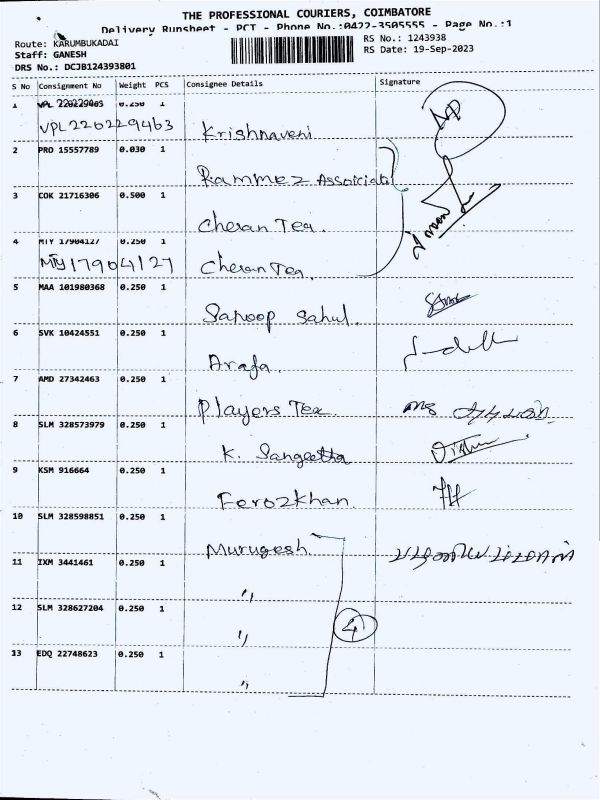 THE PROFESSIONAL COURIERS, COIMBATORE
Delivery Runsheet - PCT - Phone No.:0422-3505555 - Page No.:1
Route: KARUMBUKADAI
Staff: GANESH
DRS No.: DCJB124393801
RS No.: 1243938
RS Date: 19-Sep-2023
S No Consignment No Weight PCS Consignee Details Signature
1 VPL 220229463 0.250 1
VPL220229463 Krishnaveni
2 PRO 15557789 0.030 1
Rammez Assoiciate
3 COK 21716306 0.500 1
Cheran Tex.
4 MTY 17904127 0.250 1
MTY17904127 Cheran Tex.
5 MAA 101980368 0.250 1
Saroop Sahul.
6 SVK 10424551 0.250 1
Arafa.
7 AMD 27342463 0.250 1
Players Tex.
8 SLM 328573979 0.250 1
K. Sangeetha
9 KSM 916664 0.250 1
Ferozkhan.
10 SLM 328598851 0.250 1
Murugesh.
11 IXM 3441461 0.250 1
"
12 SLM 328627204 0.250 1
" 4
13 EDQ 22748623 0.250 1
"